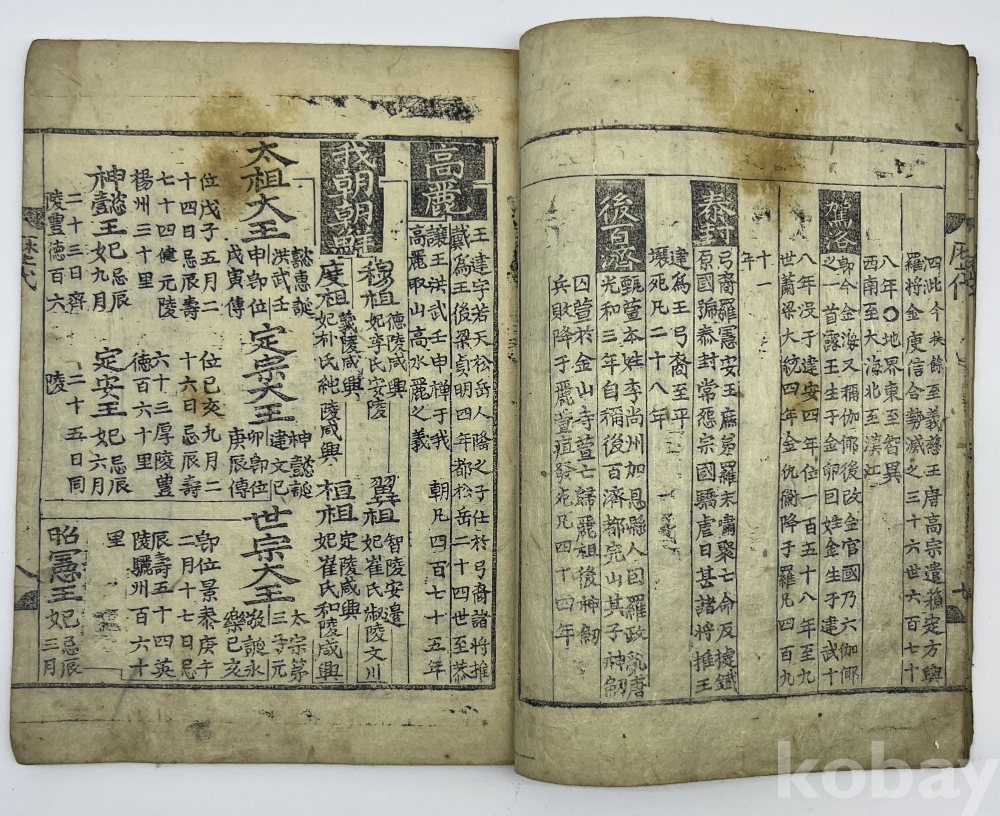 歷代
四此今扶餘至義慈王唐高宗遣蘇定方與
羅將金庾信合勢滅之三十六世六百七十
八年〇地界東至智異
西南至大海北至漢江
駕洛
卽今金海又稱伽倻後改金官國乃六伽倻
之一首露王生于金卵因姓金生于建武十
八年沒于建安四年位一百五十八年至九
世蕭梁大統四年金仇衡降于羅凡四百九
十一年
泰封
弓裔羅憲安王庶弟羅末嘯聚亡命反據鐵
原國號泰封常怨宗國驕虐日甚諸將推王
建爲王弓裔至平
壤死凡二十八年
後百濟
甄萱本姓李尚州加恩縣人因羅政亂唐
光和三年自稱後百濟都完山其子神劒
囚萱於金山寺萱亡歸麗祖後神劒
兵敗降于麗萱疽發死凡四十四年
高麗
王建字若天松岳人隆之子仕於弓裔諸將推
戴爲王後梁貞明四年都松岳二十四世至恭
讓王洪武壬申禪于我 朝凡四百七十五年
高麗取山高水麗之義
我朝朝鮮
穆祖 德陵咸興 妃李氏安陵
翼祖 智陵安邊 妃崔氏淑陵文川
度祖 義陵咸興 妃朴氏純陵咸興
桓祖 定陵咸興 妃崔氏和陵咸興
太祖大王
懿惠誕
洪武壬
申卽位
戊寅傳
位戊子五月二
十四日忌辰壽
七十四健元陵
楊州三十里
神懿王妃 忌辰九月
二十三日齊
陵豊德百六
定宗大王
神懿誕
建文己
卯卽位
庚辰傳
位己亥九月二
十六日忌辰壽
六十三厚陵豊
德百六十里
定安王妃 忌辰六月
二十五日同
陵
世宗大王
太宗第
三子元
敬誕永
樂己亥
卽位景泰庚午
二月十七日忌
辰壽五十四英
陵驪州百六十
里
昭憲王妃 忌辰三月